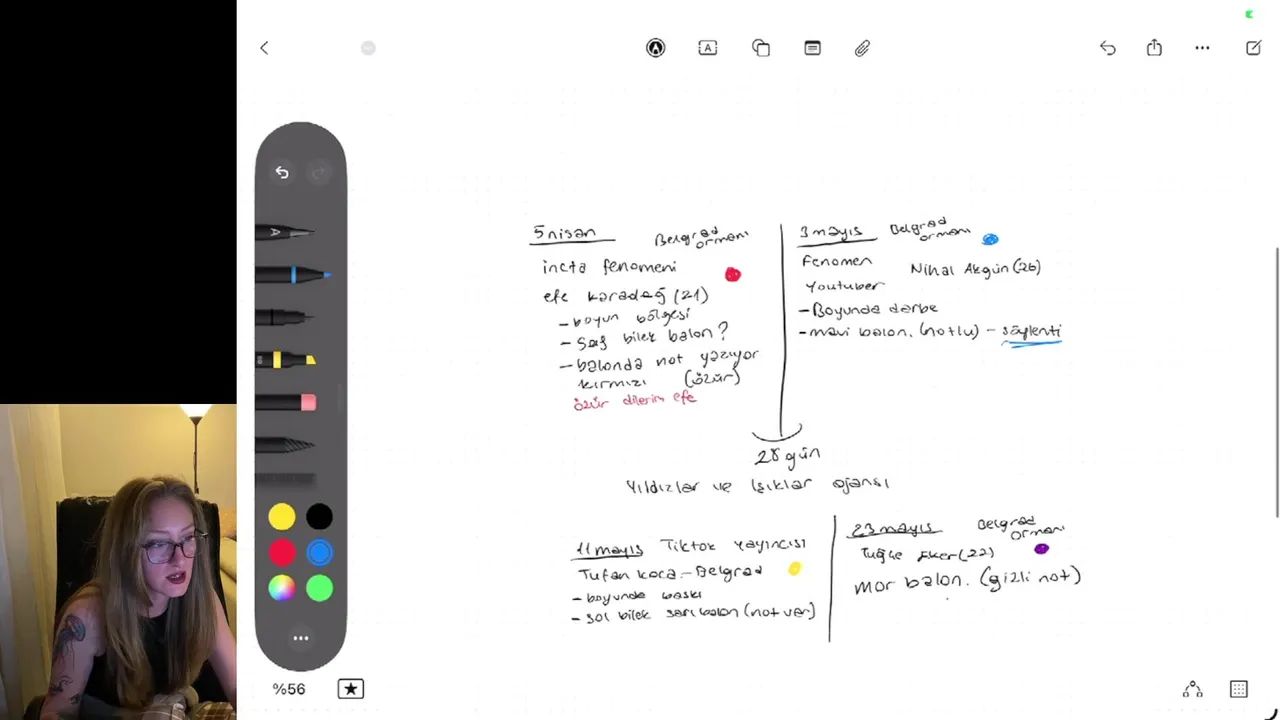 5 nisan Belgrad ormanı
incta fenomeni
efe karadağ (21)
- boyun bölgesi
- sağ bilek balon?
- balonda not yazıyor
kırmızı (özür)
özür dilerim efe
3 mayıs Belgrad ormanı
Fenomen
Youtuber
Nihal Akgün (26)
- Boyunda darbe
- mavi balon. (notlu) - söylenti
28 gün
Yıldızlar ve Işıklar ajansı
11 mayıs Tiktok yayıncısı
Tufan koca - Belgrad
- boyunda baskı
- sol bilek sarı balon (not var)
23 mayıs Belgrad ormanı
Tuğçe Eker (22)
mor balon. (gizli not)
%56